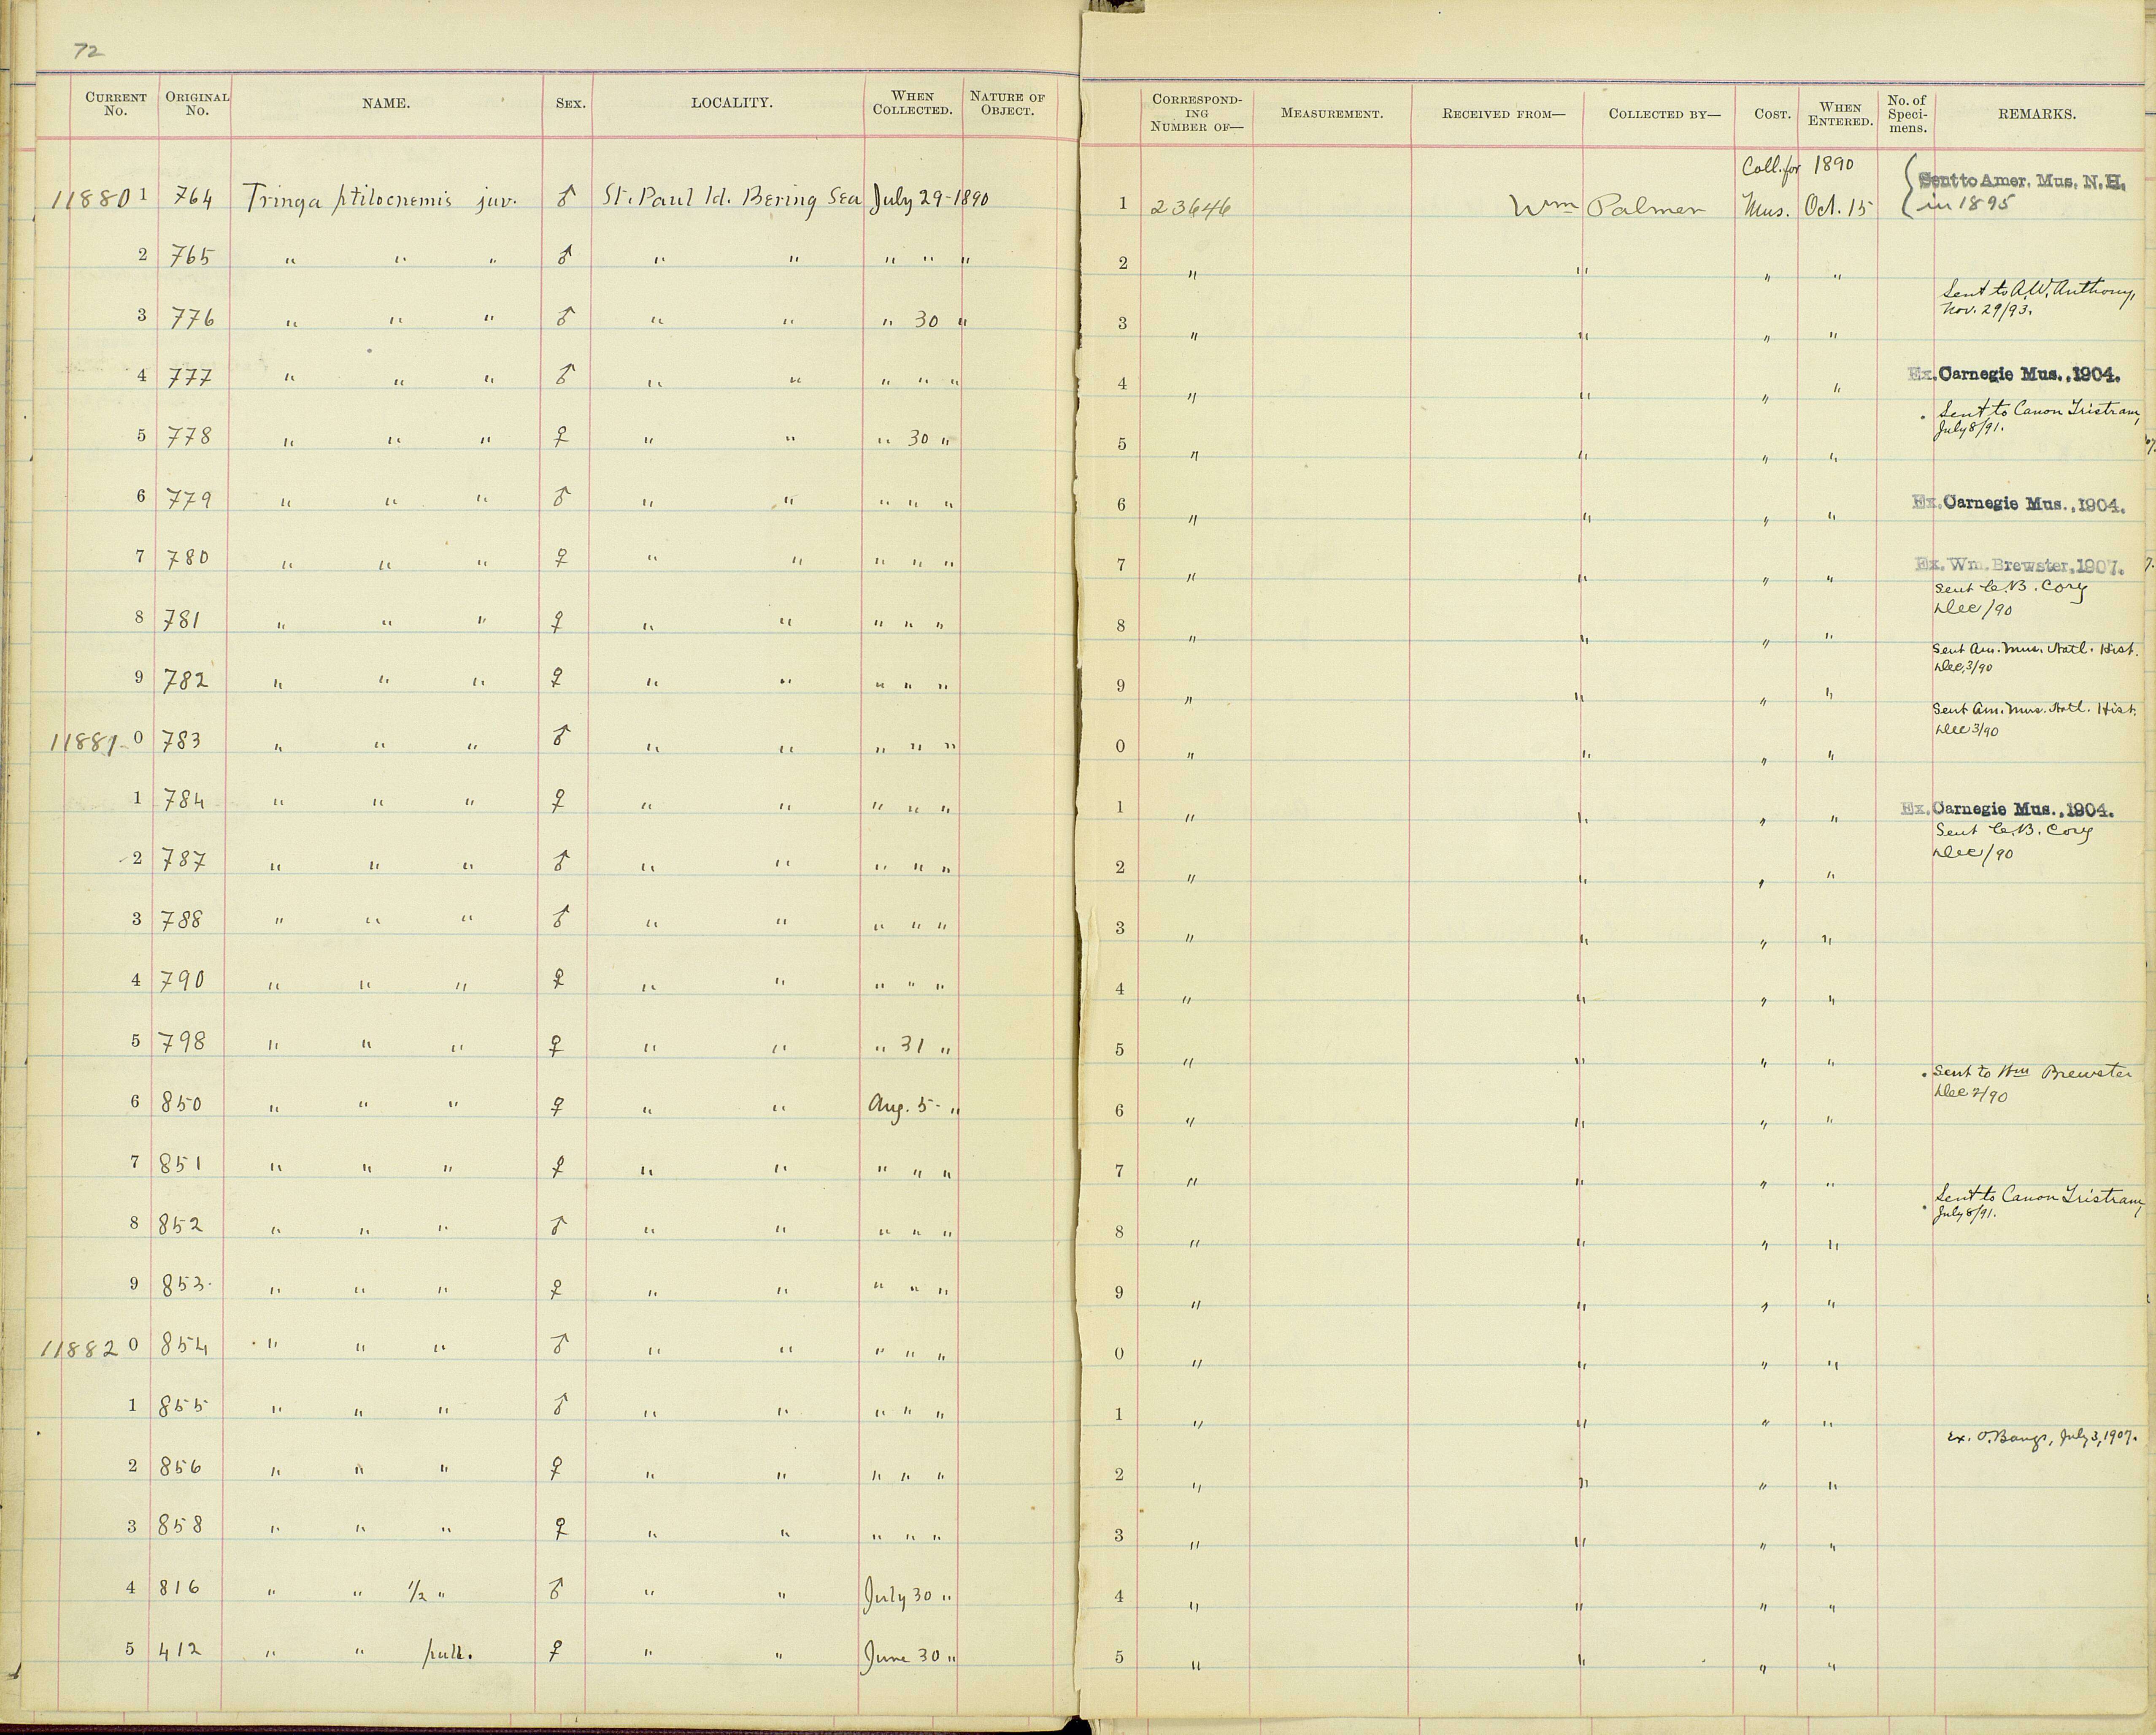 72
CURRENT No. ORIGINAL No. NAME. SEX. LOCALITY. WHEN COLLECTED. NATURE OF OBJECT. CORRESPONDING NUMBER OF— MEASUREMENT. RECEIVED FROM— COLLECTED BY— COST. WHEN ENTERED. No. of Specimens. REMARKS.
118801 764 Tringa ptilocnemis juv. ♂ St. Paul Id. Bering Sea July 29-1890 1 23646 Wm Palmer Coll. for Mus. 1890 Oct. 15 { Sent to Amer. Mus. N. H. in 1895
2 765 " " " ♂ " " " " " 2 " " " "
3 776 " " " ♂ " " " 30 " 3 " " " " Sent to A.W. Anthony, Nov. 29/93.
4 777 " " " ♂ " " " " " 4 " " " " Ex. Carnegie Mus., 1904.
5 778 " " " ♀ " " " 30 " 5 " " " " Sent to Canon Tristram, July 8/91.
6 779 " " " ♂ " " " " " 6 " " " " Ex. Carnegie Mus., 1904.
7 780 " " " ♀ " " " " " 7 " " " " Ex. Wm. Brewster, 1907.
8 781 " " " ♀ " " " " " 8 " " " " Sent C.B. Cory Dec/90
9 782 " " " ♀ " " " " " 9 " " " " Sent Am. Mus. Natl. Hist. Dec. 3/90
118810 783 " " " ♂ " " " " " 0 " " " " Sent Am. Mus. Natl. Hist. Dec 3/90
1 784 " " " ♀ " " " " " 1 " " " " Ex. Carnegie Mus., 1904.
2 787 " " " ♂ " " " " " 2 " " " " Sent C.B. Cory Dec/90
3 788 " " " ♂ " " " " " 3 " " " "
4 790 " " " ♀ " " " " " 4 " " " "
5 798 " " " ♀ " " " 31 " 5 " " " "
6 850 " " " ♀ " " Aug. 5- " 6 " " " " Sent to Wm Brewster Dec 2/90
7 851 " " " ♀ " " " " " 7 " " " "
8 852 " " " ♂ " " " " " 8 " " " " Sent to Canon Tristram, July 8/91.
9 853 " " " ♀ " " " " " 9 " " " "
118820 854 " " " ♂ " " " " " 0 " " " "
1 855 " " " ♂ " " " " " 1 " " " "
2 856 " " " ♀ " " " " " 2 " " " " Ex. O. Bangs, July 3, 1907.
3 858 " " " ♀ " " " " " 3 " " " "
4 816 " " 1/2 " ♂ " " July 30 " 4 " " " "
5 412 " " pull. ♀ " " June 30 " 5 " " " "